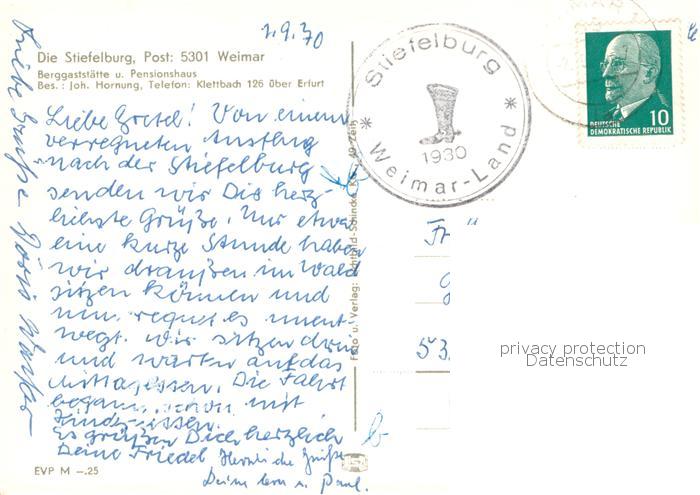 1.9.70
Die Stiefelburg, Post: 5301 Weimar
Berggaststätte u. Pensionshaus
Bes.: Joh. Hornung, Telefon: Klettbach 126 über Erfurt
Liebe Gretel! Von einem
verregneten Ausflug
nach der Stiefelburg
senden wir Dir herz-
lichste Grüße. Nur etwa
eine kurze Stunde haben
wir draußen im Wald
sitzen können und
nun regnet es unent-
wegt. Wir sitzen drin
und warten auf das
Mittagessen. Die Fahrt
begann schon mit
Es grüßen Dich herzlich
Deine Friedel Herzliche Grüße
Paul.
Liebe Grüße Doris
EVP M –.25
Foto u. Verlag:
Stiefelburg
1930
Weimar-Land
10
DEUTSCHE
DEMOKRATISCHE REPUBLIK
Fr
53
privacy protection
Datenschutz